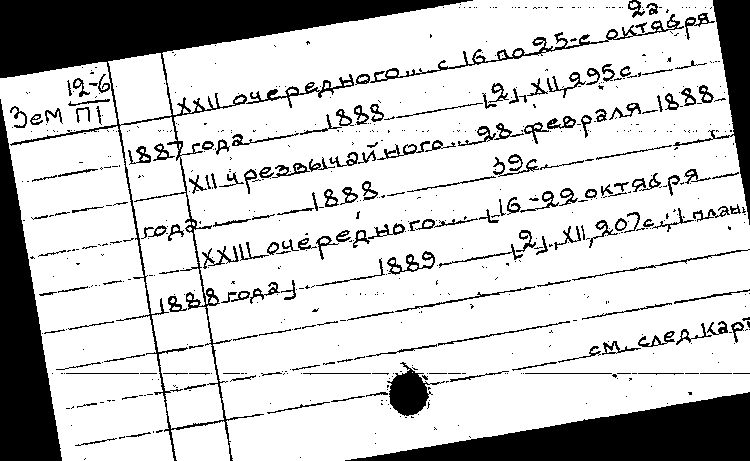 2а.
Зем 12-6
П I
XXII очередного... с 16 по 25-е октября
1887 года. 1888 [2], XII, 295 с.
XII чрезвычайного... 28 февраля 1888
года 1888 39 с.
XXIII очередного... [16-22 октября
1888 года] 1889. [2], XII, 207 с.; 1 план.
см. след. карт